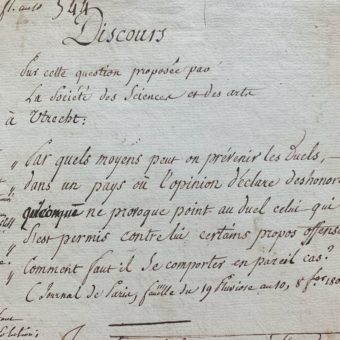 544
Discours
Sur cette question proposée par
La Société des Sciences et des arts
à Utrecht:
" Par quels moyens peut on prévenir les Duels,
" dans un pays où l'opinion déclare deshonor
" quiconque ne provoque point au duel celui qui
" s'est permis contre lui certains propos offens
" Comment faut il se comporter en pareil cas?
( Journal de Paris, feuille du 19 Pluviose an 10, 8 f.er 180